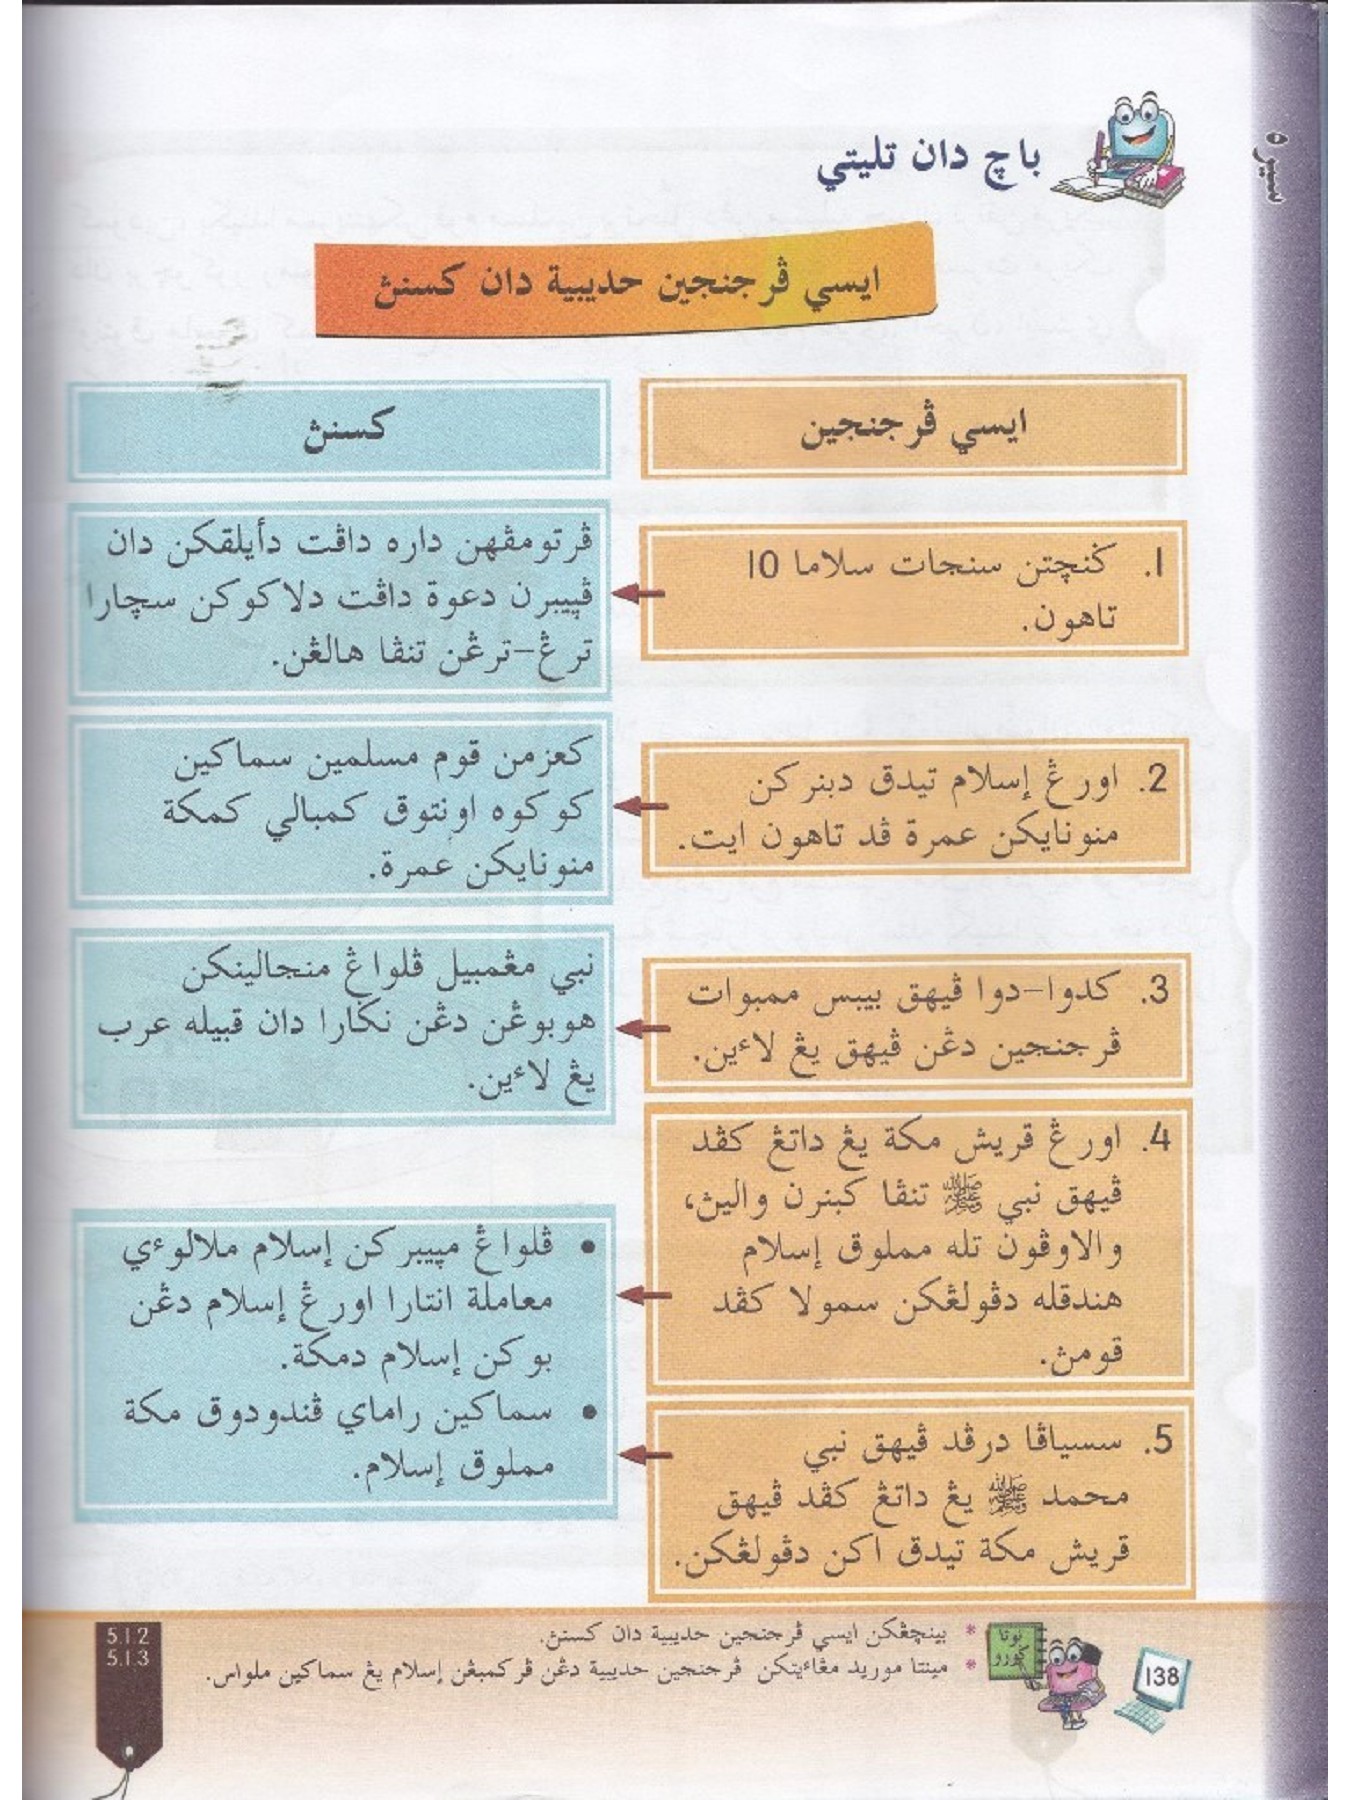 سيره
باچ دان تليتي
ايسي ڤرجنجين حديبية دان كسنڽ
ايسي ڤرجنجين
كسنڽ
1. ݢنچتن سنجات سلاما 10
تاهون.
ڤرتومڤهن داره داڤت دأيلقكن دان
ڤڽيبرن دعوة داڤت دلاكوكن سچارا
ترڠ-ترڠن تنڤا هالڠن.
2. اورڠ إسلام تيدق دبنركن
منونايكن عمرة ڤد تاهون ايت.
كعزمن قوم مسلمين سماكين
كوكوه اونتوق كمبالي كمكة
منونايكن عمرة.
3. كدوا-دوا ڤيهق بيبس ممبوات
ڤرجنجين دڠن ڤيهق يڠ لاءين.
نبي مڠمبيل ڤلواڠ منجالينكن
هوبوڠن دڠن نݢارا دان قبيله عرب
يڠ لاءين.
4. اورڠ قريش مكة يڠ داتڠ كڤد
ڤيهق نبي ﷺ تنڤا كبنرن واليڽ،
والاوڤون تله مملوق إسلام
هندقله دڤولڠكن سمولا كڤد
قومڽ.
• ڤلواڠ مڽيبركن إسلام ملالوءي
معاملة انتارا اورڠ إسلام دڠن
بوكن إسلام دمكة.
• سماكين راماي ڤندودوق مكة
مملوق إسلام.
5. سسياڤا درڤد ڤيهق نبي
محمد ﷺ يڠ داتڠ كڤد ڤيهق
قريش مكة تيدق اكن دڤولڠكن.
نوتا
ݢورو
* بينچڠكن ايسي ڤرجنجين حديبية دان كسنڽ.
* مينتا موريد مڠاءيتكن ڤرجنجين حديبية دڠن ڤركمبڠن إسلام يڠ سماكين ملواس.
138
5.1.2
5.1.3